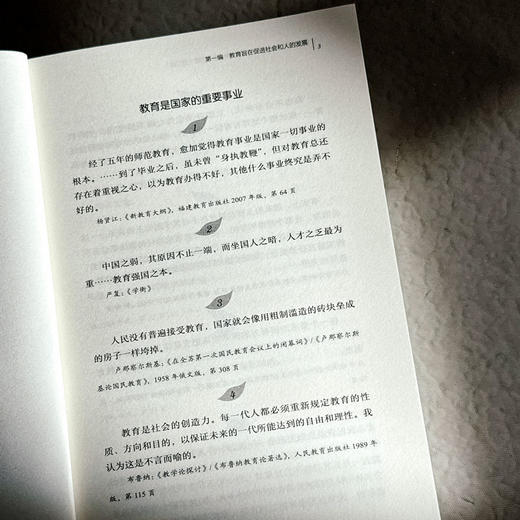 第一编 教育旨在促进社会和人的发展 3
教育是国家的重要事业
1
经了五年的师范教育，愈加觉得教育事业是国家一切事业的
根本。……到了毕业之后，虽未曾“身执教鞭”，但对教育总还
存在着重视之心，以为教育办得不好，其他什么事业终究是弄不
好的。
杨贤江：《新教育大纲》，福建教育出版社2007年版，第64页
2
中国之弱，其原因不止一端，而坐国人之暗，人才之乏最为
重……教育强国之本。
严复：《学衡》
3
人民没有普遍接受教育，国家就会像用粗制滥造的砖块垒成
的房子一样垮掉。
卢那察尔斯基：《在全苏第一次国民教育会议上的闭幕词》/《卢那察尔斯
基论国民教育》，1958年俄文版，第308页
4
教育是社会的创造力。每一代人都必须重新规定教育的性
质、方向和目的，以保证未来的一代所能达到的自由和理性。我
认为这是不言而喻的。
布鲁纳：《教学论探讨》/《布鲁纳教育论著选》，人民教育出版社1989年
版，第115页